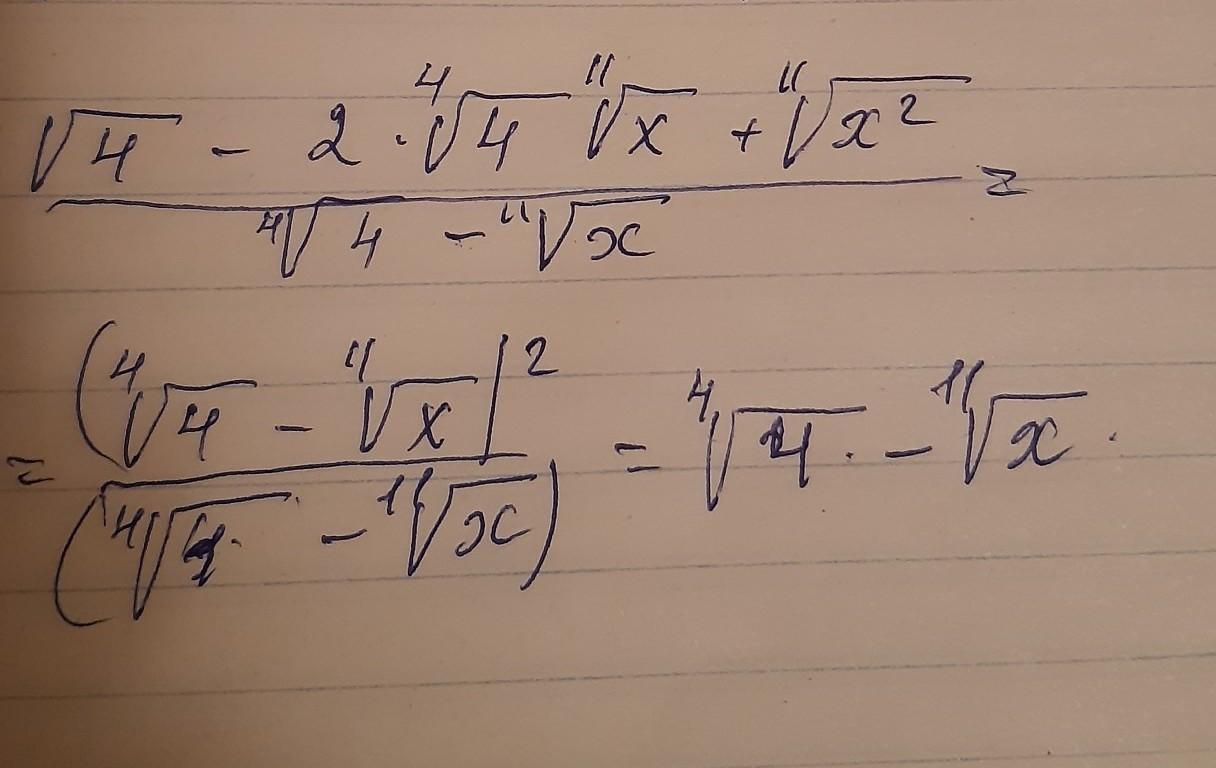 √4 - 2 · ⁴√4 ¹¹√x + ¹¹√x² =
⁴√4 - ¹¹√x
= (⁴√4 - ¹¹√x)² = ⁴√4 - ¹¹√x .
(⁴√4 - ¹¹√x)